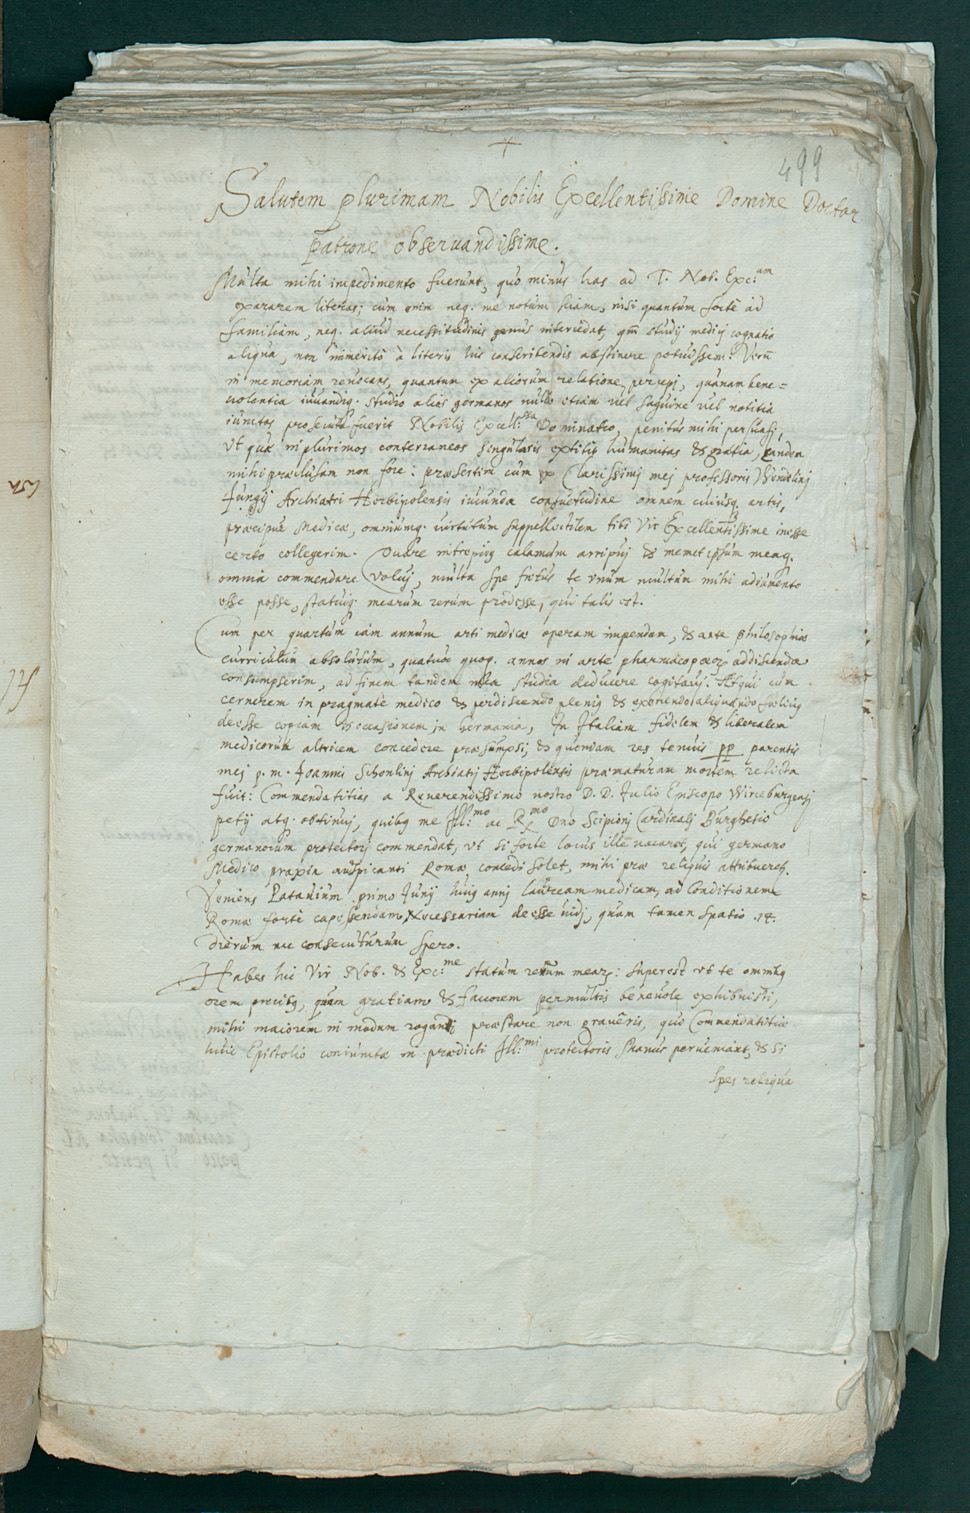 +
499
Salutem plurimam Nobilis Excellentissime Domine Doctor
Patrone observandissime.
Multa mihi impedimento fuerunt, quo minus has ad T. Nob. Exc:am
exararem literas; cum enim neq. me notum sciam, nisi quantum forte ad
familiam, neq. aliud necessitudinis genus intercedat, qm studij medicj cognatio
aliqua, non immerito à literis his conscribendis abstinere potuissem. Verū
in memoriam revocans, quantum ex aliorum relatione percepj, quanam bene=
volentia iuvandiq. studio alios germanos nullo etiam vel sanguine vel notitia
iunctos prosecuta fuerit Nobilis Excell:ssa Dominatio, penitus mihi persuasi,
vt quæ in plurimos conterraneos singularis extitit humanitas & gratia, eandem
mihi præclusam non fore: præsertim cum ex Clarissimj mej professoris Wendelinj
Jungij Archiatri Herbipolensis iucunda consuetudine omnem cuiusq. artis,
præcipuè Medicæ, omniumq. virtutum suppellectilem tibi Vir Excellentissime inesse
certo collegerim. Quare intrepidq calamum arripuj & memet ipsum meaq.
omnia commendare voluj, multa spe fretus te vnum multùm mihi adiumento
esse posse, statuiq mearum rerum prodesse, qui talis est.
Cum per quartum iam annum arti medicæ operam impendam, & ante Philosophiæ
curriculum absolutum, quatuor quoq. annos in arte pharmacopœor. addiscenda
consumpserim, ad finem tandem mea studia deducere cogitavj. Atqui cùm
cernerem in pragmate medico & perdiscendo pleniq & exercendo aliquando felicius
deesse copiam & occasionem in Germania, In Italiam fidelem & liberalem
medicorum altricem concedere præsumpsi, & quoniam res tenuis pp parentis
mej p. m. Joannis Schonlinj Archiatrj Herbipolensis præmaturam mortem relicta
fuit: Commendatitias a Reverendissimo nostro D. D. Julio Episcopo Wirceburgensj
petij atq. obtinuj, quibq me Ill:mo ac R:mo Dno Scipionj Cardinalj Burghesio
germanorum protectorj commendat, vt si forte locus ille vacaret, qui germano
Medico praxin auspicanti Romæ concedi solet, mihi præ reliquis attribueretr.
Veniens Patavium primo Junij huiq annj lauream medicam, ad Conditionem
Romæ forte capessendam Necessariam deesse vidj, quam tamen spatio 14.
dierum me consecuturum spero.
Habes hic Vir Nob. & Exc:me statum rerum mear.: superest vt te omnibq
orem precibq, quam gratiam & favorem permultis benevole exhibuisti,
mihi maiorem in modum roganti præstare non graveris, quo Commendatitiæ
huic Epistolio coniunctæ in prædicti Ill:mi protectoris manus perveniant, & si
spes reliqua